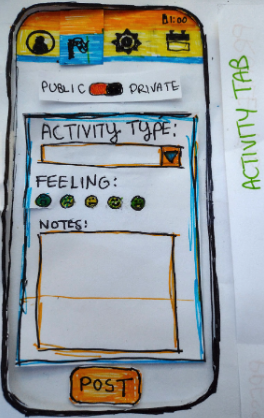 1:00
PUBLIC PRIVATE
ACTIVITY TYPE:
FEELING:
NOTES:
POST
ACTIVITY TAB